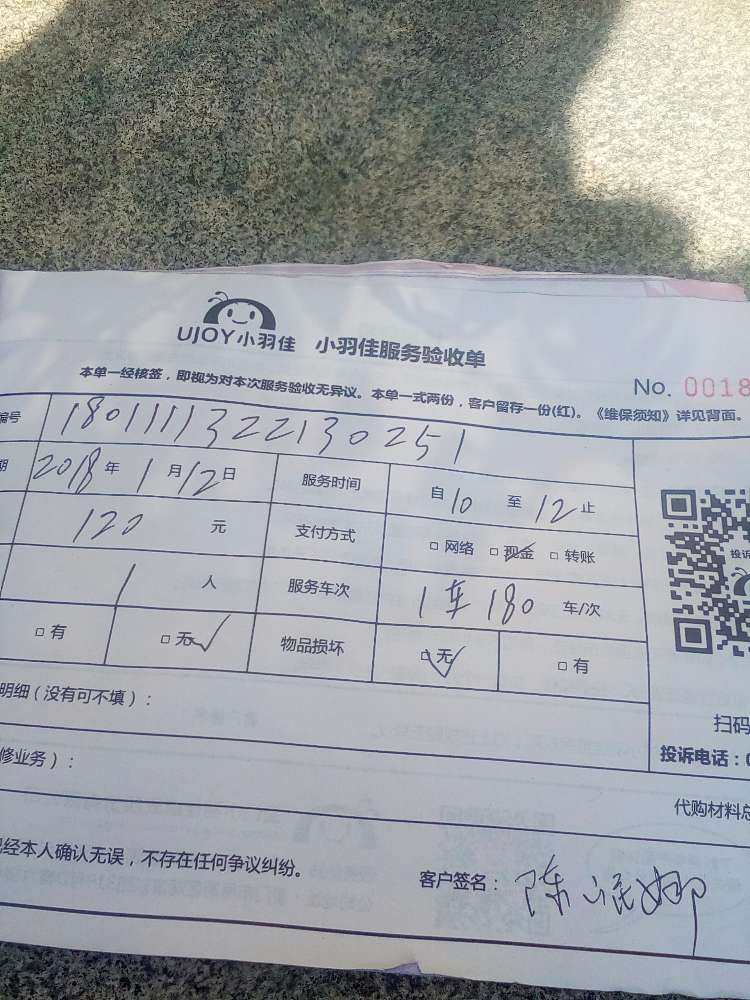 UJOY小羽佳 小羽佳服务验收单
No. 0018
本单一经核签，即视为对本次服务验收无异议。本单一式两份，客户留存一份(红)。《维保须知》详见背面。
编号 1801111322130251
期 2018年1月12日 服务时间 自10至12止
120元 支付方式 □网络 □现金 □转账
1人 服务车次 1车180车/次
□有 □无 物品损坏 □无 □有
明细（没有可不填）：
扫码
修业务）：
投诉电话：0
代购材料总
已经本人确认无误，不存在任何争议纠纷。
客户签名：陈 娜